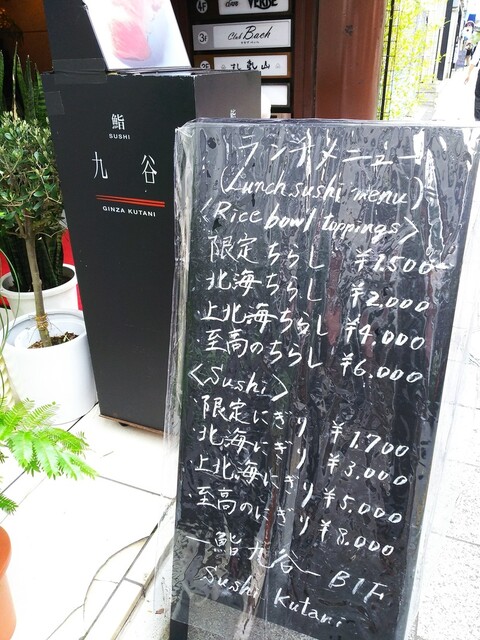 4F
VERDE
3F
Club Bach
2F
鮨
SUSHI
九谷
GINZA KUTANI
鮨
ランチメニュー
(Lunch sushi menu)
<Rice bowl toppings>
限定ちらし ¥1,500
北海ちらし ¥2,000
上北海ちらし ¥4,000
至高のちらし ¥6,000
<Sushi>
限定にぎり ¥1,700
北海にぎり ¥3,000
上北海にぎり ¥5,000
至高のにぎり ¥8,000
鮨九谷 B1F
Sushi Kutani